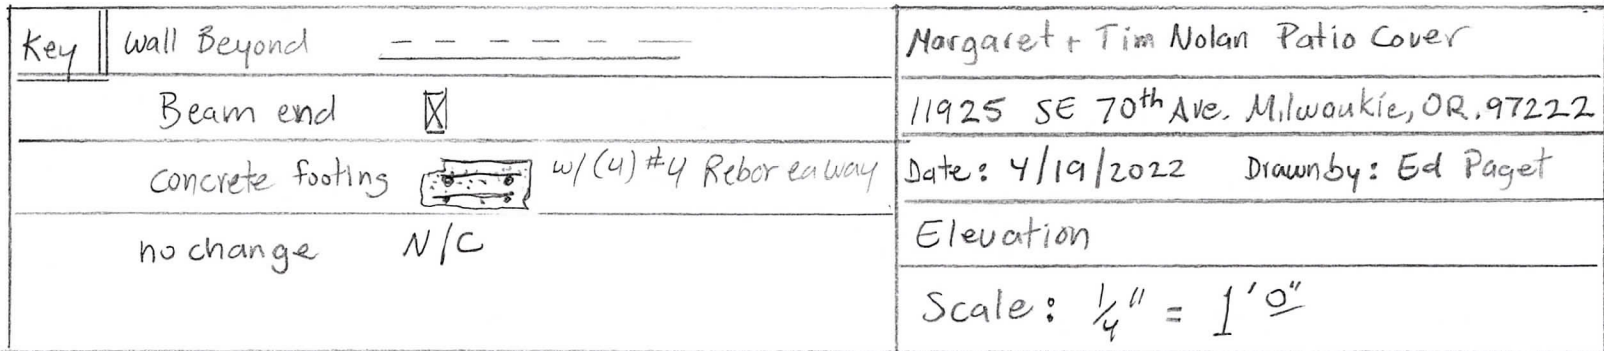 Key
Wall Beyond
Beam end
concrete footing w/ (4) #4 Rebar ea way
no change N/C
Margaret + Tim Nolan Patio Cover
11925 SE 70th Ave. Milwaukie, OR. 97222
Date: 4/19/2022 Drawn by: Ed Paget
Elevation
Scale: 1/4" = 1'0"